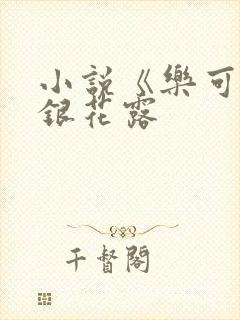 小說《樂可
銀花露
千督閣